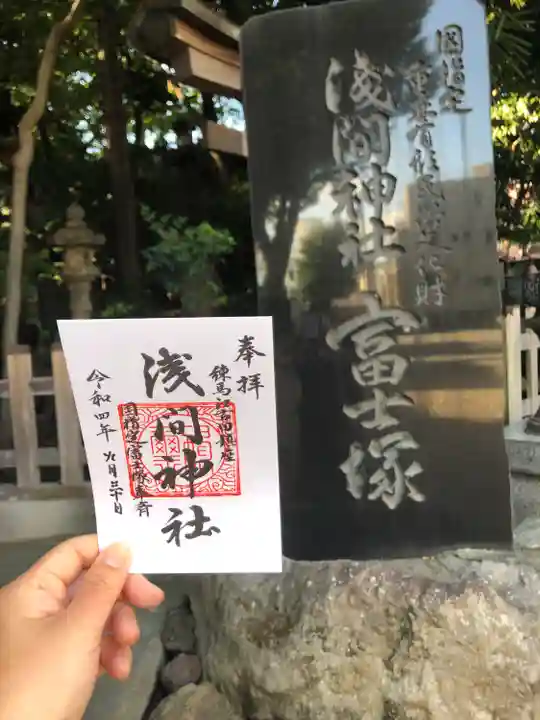 国指定
重要有形民俗文化財
浅間神社 富士塚
奉拝
練馬江古田鎮座
浅間神社
国指定富士塚奉斎
令和四年 九月三十日